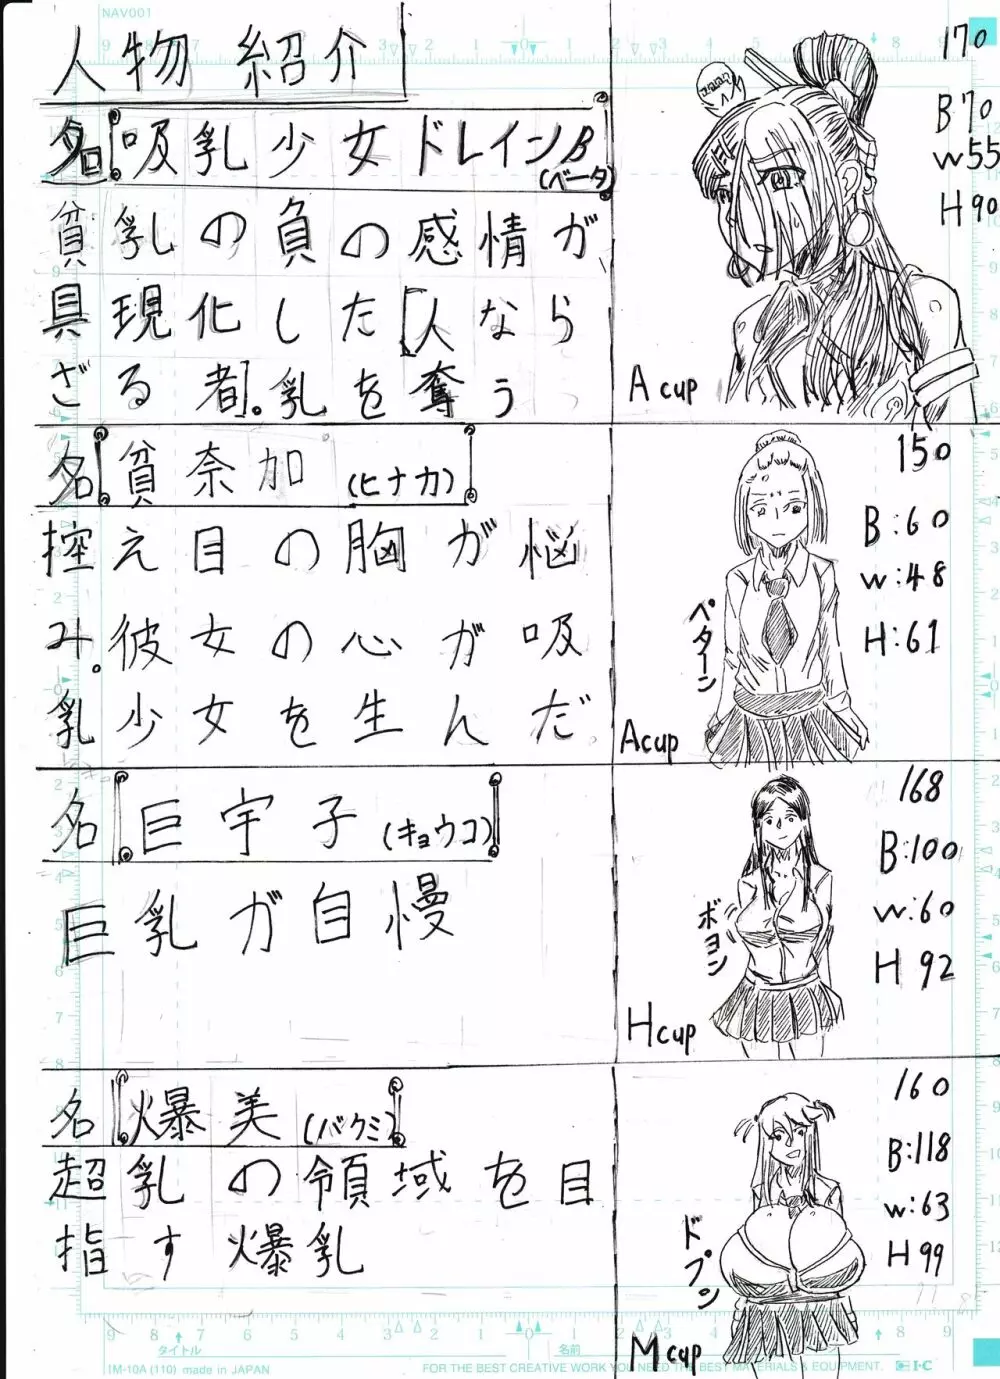 NAV001
人物紹介
名 吸乳少女ドレインβ
(ベータ)
貧乳の負の感情が
具現化した「人なら
ざる者」。乳を奪う
170
B70
W55
H90
A cup
名 貧奈加 (ヒナカ)
控え目の胸が悩
み。彼女の心が吸
乳少女を生んだ
150
B:60
W:48
H:61
ペターン
A cup
名 巨宇子 (キョウコ)
巨乳が自慢
168
B:100
W:60
H92
ボヨン
H cup
名 爆美 (バクミ)
超乳の領域を目
指す爆乳
160
B:118
W:63
H99
ドプン
M cup
タイトル
名前
IM-10A (110) made in JAPAN
FOR THE BEST CREATIVE WORK YOU NEED THE BEST MATERIALS & EQUIPMENT.
I·C